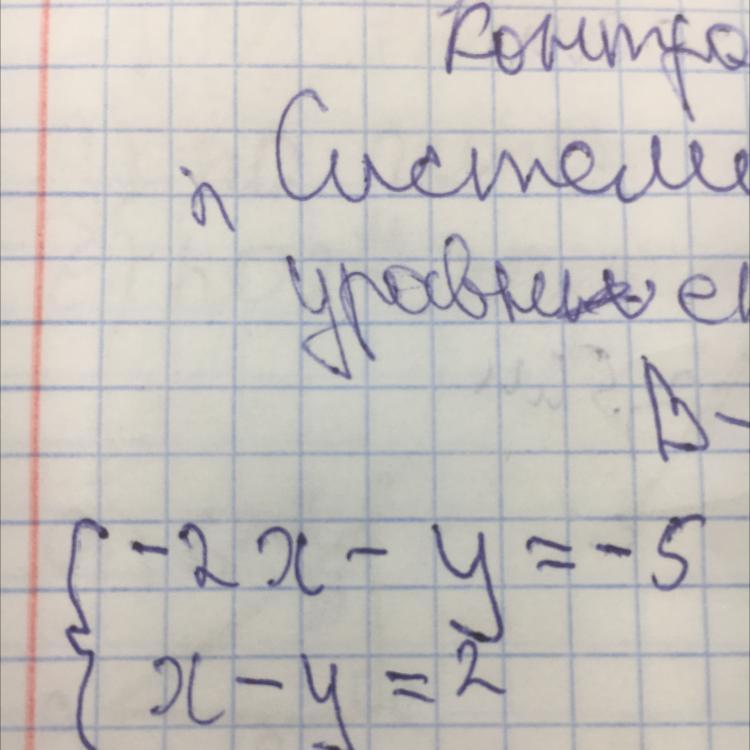 Контро
Системы
уравн
В-
-2x - y = -5
x - y = 2